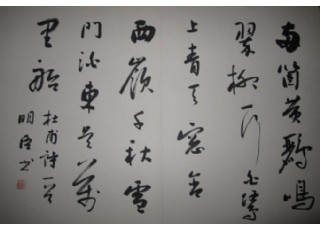 两箇黄鹂鸣
翠柳一行白鹭
上青天窗含
西岭千秋雪
门泊东吴万
里船
杜甫诗一首
明臣书